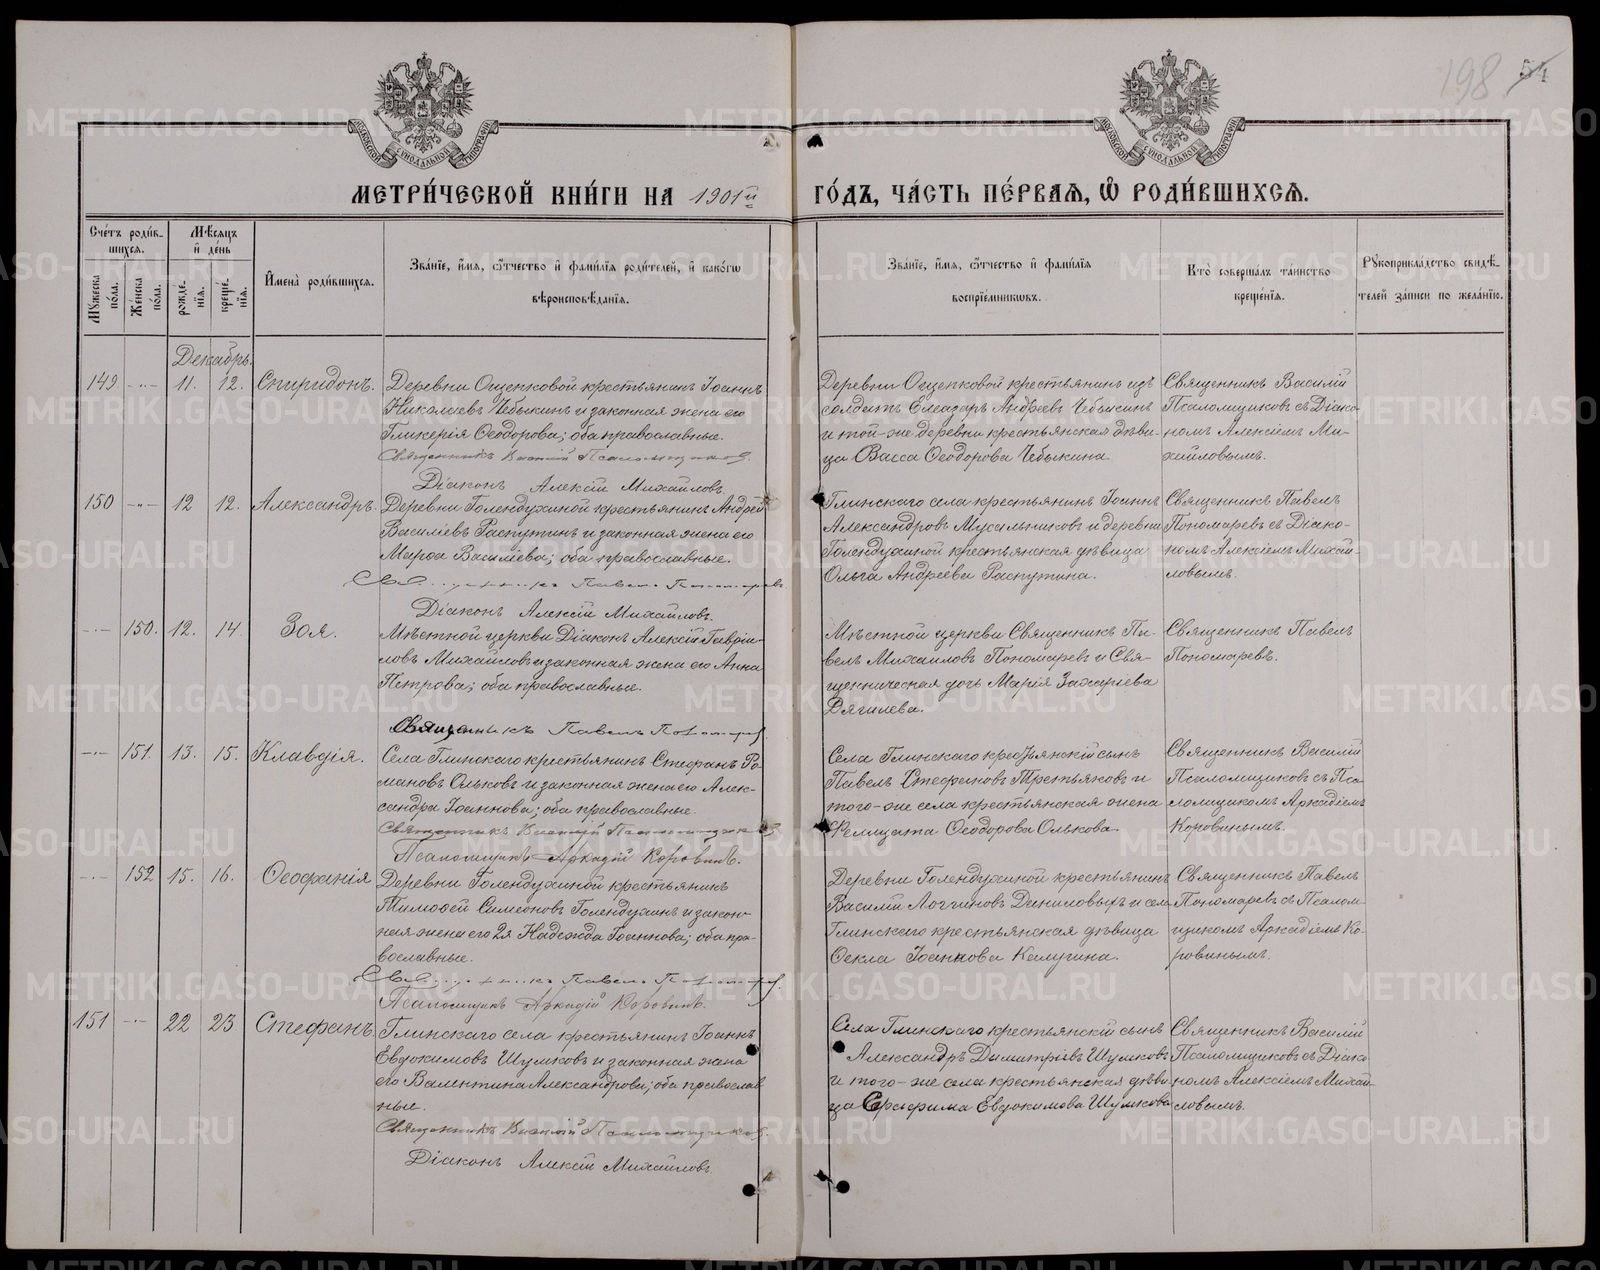 198 54
МОСКОВСКОЙ СѴНОДАЛЬНОЙ ТИПОГРАФІИ
МОСКОВСКОЙ СѴНОДАЛЬНОЙ ТИПОГРАФІИ
МЕТРИ́ЧЕСКОЙ КНИ́ГИ НА 1901й ГО́ДЪ, ЧА́СТЬ ПЕ́РВАѦ, Ѽ РОДИ́ВШИХСѦ.
Сче́тъ роди́вшихся.
Мѣ́сяцъ и҆ де́нь
Мꙋ́жеска по́ла.
Же́нска по́ла.
рожде́нїя.
креще́нїя.
И҆мена̀ роди́вшихся.
Зва́нїе, и҆́мя, ѻ҆́тчество и҆ фами́лїя роди́телей, и҆ како́гѡ
вѣроисповѣ́данїя.
Зва́нїе, и҆́мя, ѻ҆́тчество и҆ фами́лїя
воспрїе́мникѡвъ.
Кто̀ соверша́лъ та́инство
креще́нїя.
Рꙋкоприкла́дство свидѣ́телей за́писи по жела́нїю.
Декабрь.
149 -"- 11. 12. Спиридонъ.
Деревни Ощепковой крестьянинъ Іоаннъ
Николаевъ Чебыкинъ и законная жена его
Гликерія Ѳеодорова; оба православные.
Священникъ Василій Псаломщиковъ.
Діаконъ Алексій Михайловъ.
Деревни Ощепковой крестьянинъ
солдатъ Елеазаръ Андреевъ Чебыкинъ
и той-же деревни крестьянская дѣви-
ца Васса Ѳеодорова Чебыкина.
Священникъ Василій
Псаломщиковъ съ Діако-
номъ Алексіемъ Ми-
хайловымъ.
150 -"- 12 12. Александръ.
Деревни Голендухиной крестьянинъ Андрей
Василіевъ Распутинъ и законная жена его
Марѳа Василіева; оба православные.
Священникъ Павелъ Пономаревъ
Діаконъ Алексій Михайловъ.
Глинскаго села крестьянинъ Іоаннъ
Александровъ Мусальниковъ и деревни
Голендухиной крестьянская дѣвица
Ольга Андреева Распутина.
Священникъ Павелъ
Пономаревъ съ Діако-
номъ Алексіемъ Михай-
ловымъ.
-"- 150. 12. 14. Зоя.
Мѣстной церкви Діаконъ Алексій Гаврии-
ловъ Михайловъ и законная жена его Анна
Петрова; оба православные.
Священникъ Павелъ Пономаревъ.
Мѣстной церкви Священникъ Па-
велъ Михаиловъ Пономаревъ и Свя-
щенническая дочь Марія Захаріева
Дягилева.
Священникъ Павелъ
Пономаревъ.
-"- 151. 13. 15. Клавдія.
Села Глинскаго крестьянинъ Стефанъ Ро-
мановъ Ольковъ и законная жена его Алек-
сандра Іоаннова; оба православные.
Священникъ Василій Псаломщиковъ
Псаломщикъ Аркадій Коровинъ.
Села Глинскаго крестьянскій сынъ
Павелъ Стефановъ Третьяковъ и
того-же села крестьянская жена
Фелицата Ѳеодорова Олькова.
Священникъ Василій
Псаломщиковъ съ Пса-
ломщикомъ Аркадіемъ
Коровинымъ.
-"- 152 15. 16. Ѳеофанія
Деревни Голендухиной крестьянинъ
Тимоѳей Симеоновъ Голендухинъ и закон-
ная жена его 2я Надежда Іоаннова; оба пра-
вославные.
Священникъ Павелъ Пономаревъ
Псаломщикъ Аркадій Коровинъ.
Деревни Голендухиной крестьянинъ
Василій Логгиновъ Даниловыхъ и села
Глинскаго крестьянская дѣвица
Ѳекла Іоаннова Калугина.
Священникъ Павелъ
Пономаревъ съ Псалом-
щикомъ Аркадіемъ Ко-
ровинымъ.
151 -"- 22 23 Стефанъ.
Глинскаго села крестьянинъ Іоаннъ
Евдокимовъ Шумковъ и законная жена
его Валентина Александрова; оба православ-
ные.
Священникъ Василій Псаломщиковъ.
Діаконъ Алексій Михайловъ.
Села Глинскаго крестьянскій сынъ
Александръ Димитріевъ Шумковъ
и того-же села крестьянская дѣви-
ца Серафима Евдокимова Шумкова
Священникъ Василій
Псаломщиковъ съ Діако-
номъ Алексіемъ Михай-
ловымъ.
METRIKI.GASO-URAL.RU